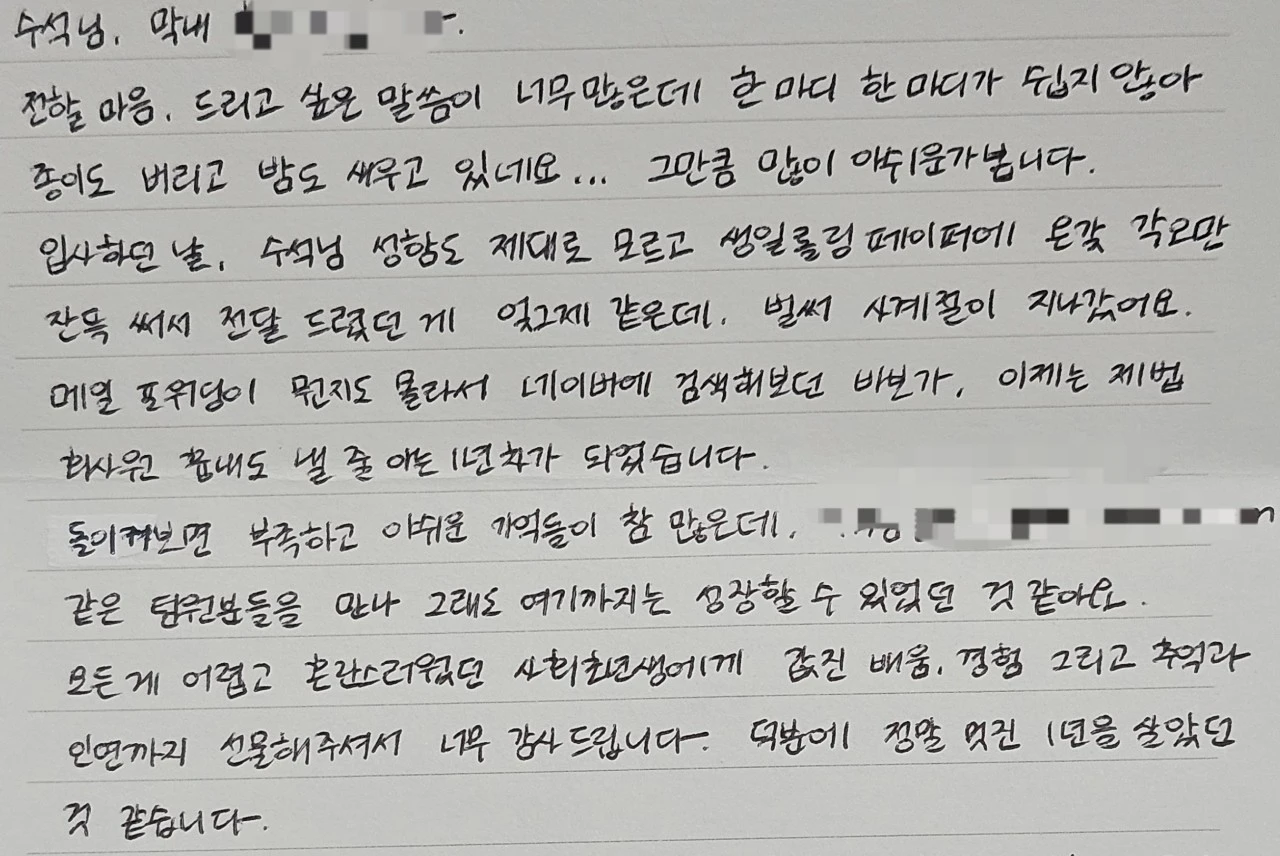 수석님, 막내
전할 마음, 드리고 싶은 말씀이 너무 많은데 한 마디 한 마디가 쉽지 않아
종이도 버리고 밤도 새우고 있네요... 그만큼 많이 아쉬운가봅니다.
입사하던 날, 수석님 성함도 제대로 모르고 생일롤링페이퍼에 온갖 각오만
잔뜩 써서 전달 드렸던 게 엊그제 같은데, 벌써 사계절이 지나갔어요.
메일 포워딩이 뭔지도 몰라서 네이버에 검색해보던 바보가, 이제는 제법
회사원 흉내도 낼 줄 아는 1년차가 되었습니다.
돌이켜보면 부족하고 아쉬운 기억들이 참 많은데,
같은 팀원분들을 만나 그래도 여기까지는 성장할 수 있었던 것 같아요.
모든게 어렵고 혼란스러웠던 사회초년생에게 값진 배움, 경험 그리고 추억과
인연까지 선물해주셔서 너무 감사드립니다. 덕분에 정말 멋진 1년을 살았던
것 같습니다.